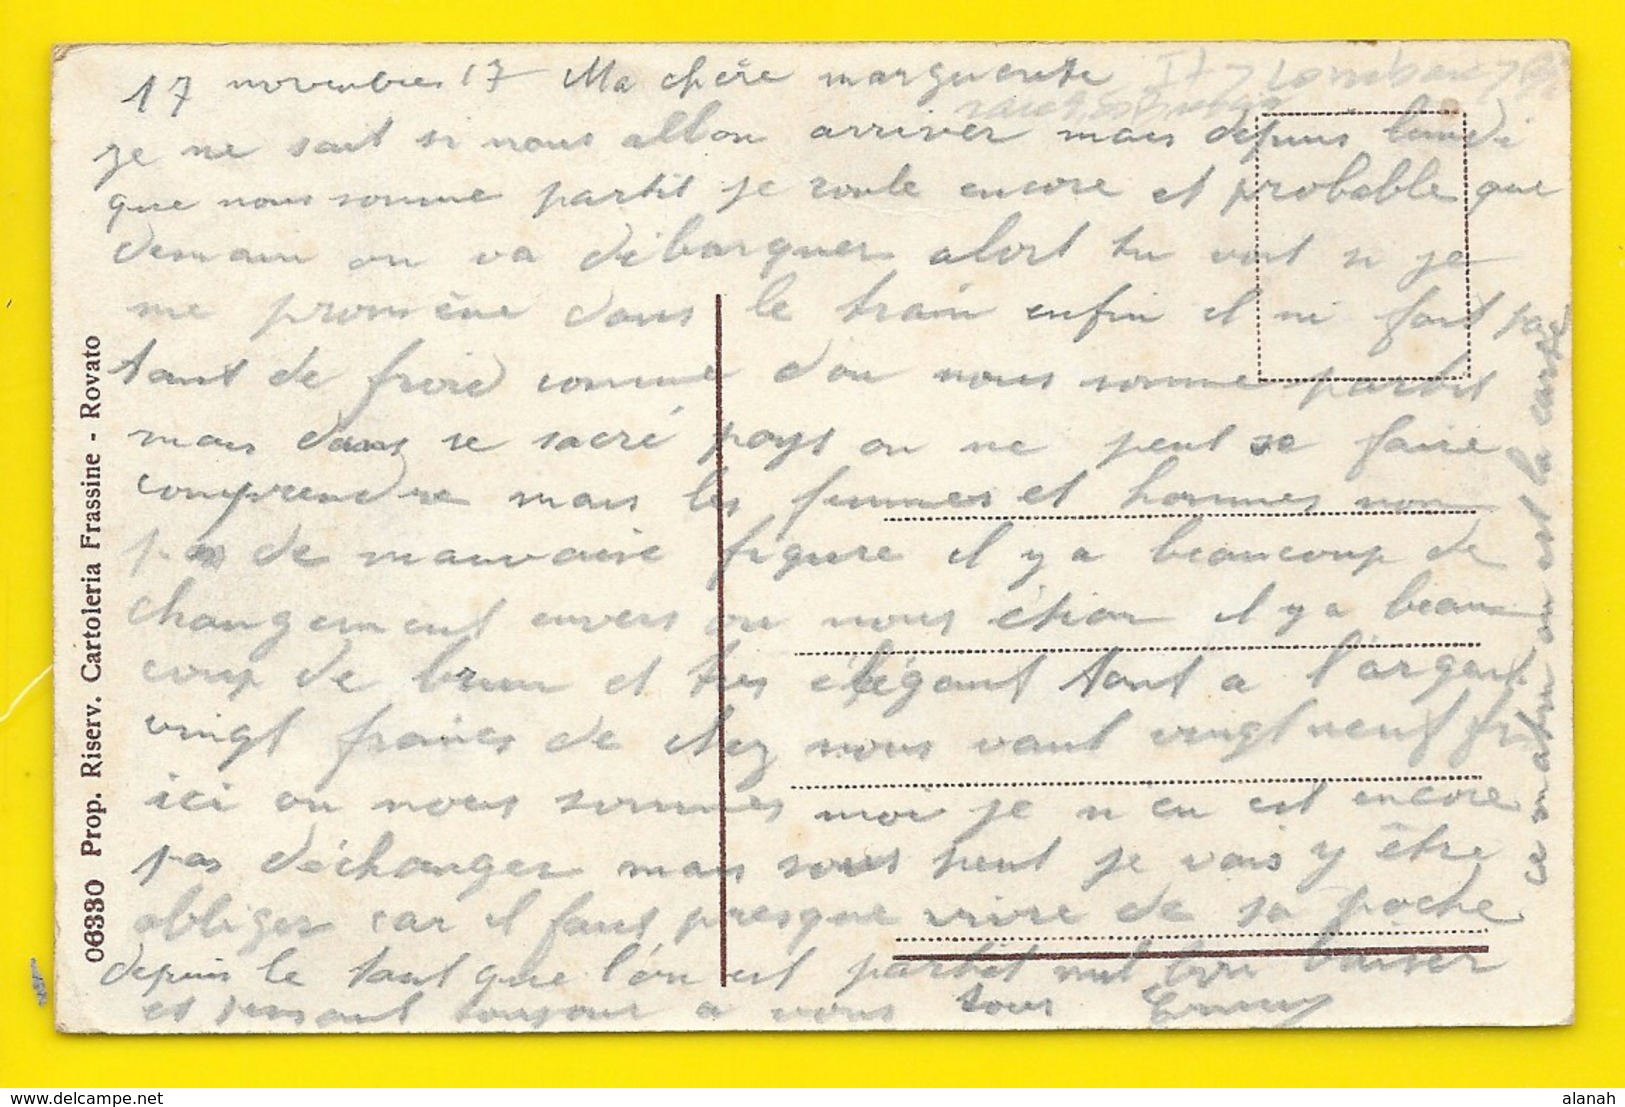 17 novembres 17 Ma chére marguerite
je ne sait si nous allon arriver mais depuis lundi
que nous somme partit je roule encore et probable que
demain on va débarquer alort tu voit si je
me promène dans le train enfin il ni fait pa
tant de froid comme d'ou nous somme partit
mais dans se sacré pays on ne peut se faire
comprendre mais les femmes et hommes non
pas de mauvaise figure il y a beaucoup de
changement envers ou nous étion il y a beau
coup de brun et très élégant tant a l'argent
vingt francs de chez nous vaut vingt neuf fr
ici ou nous sommes moi je n'en est encore
pas déchanger mais sous peut je vais y être
obliger car il faut presque vivre de sa poche
depuis le tant que l'on est partit mil bon baiser
et pensant toujour a vous tous
ce matin ou est la carte
06330 Prop. Riserv. Cartoleria Frassine - Rovato
delcampe.net
alanah